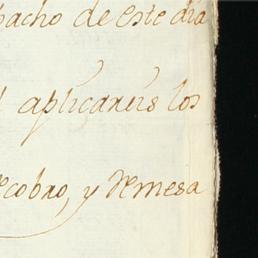 pacho de este dia
aplicareis los
ecobro, y Remesa